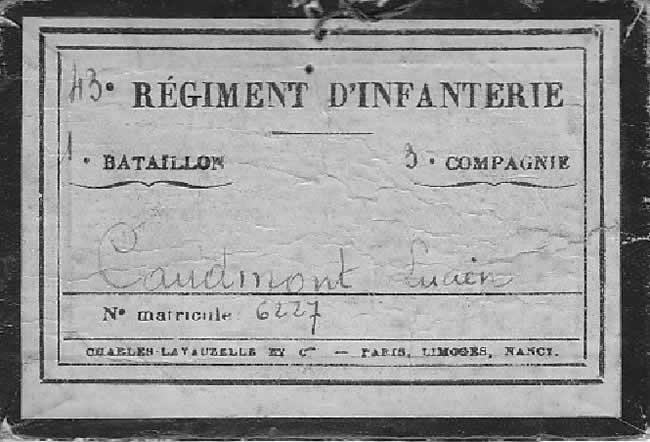 43° RÉGIMENT D'INFANTERIE
1° BATAILLON 3° COMPAGNIE
Caudmont Lucien
N° matricule 6227
CHARLES-LAVAUZELLE ET Cie — PARIS, LIMOGES, NANCY.